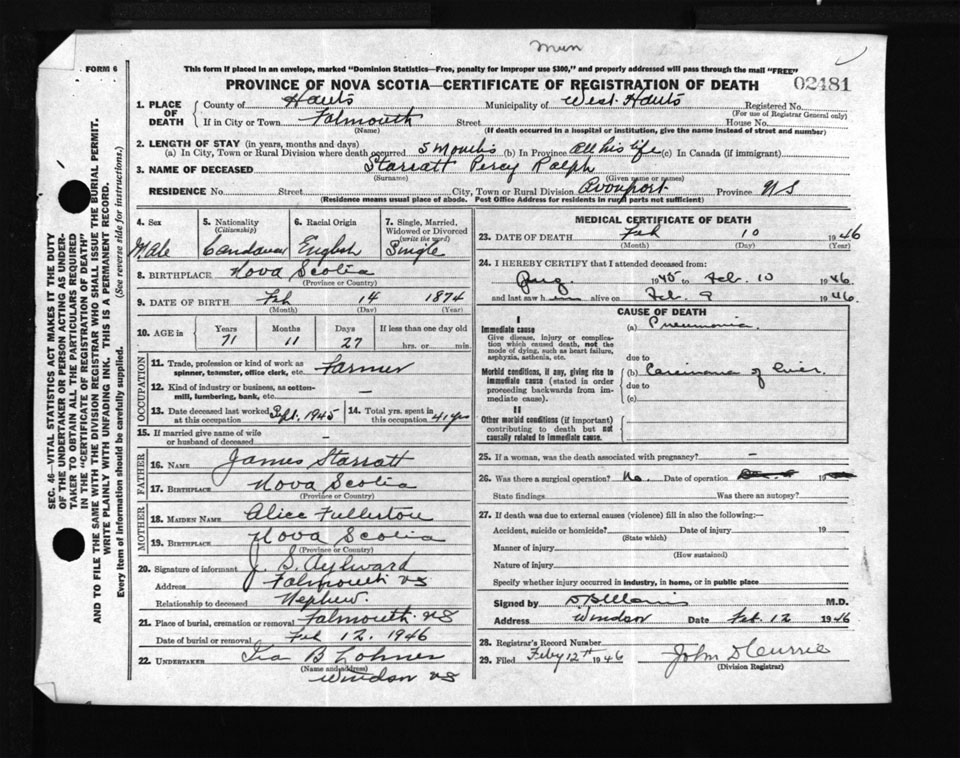 Mun
FORM 6
This form if placed in an envelope, marked "Dominion Statistics—Free, penalty for improper use $300," and properly addressed will pass through the mail "FREE"
PROVINCE OF NOVA SCOTIA—CERTIFICATE OF REGISTRATION OF DEATH
02481
1. PLACE OF DEATH
County of Hants Municipality of West Hants Registered No.
(For use of Registrar General only)
If in City or Town Falmouth Street House No.
(Name) (If death occurred in a hospital or institution, give the name instead of street and number)
2. LENGTH OF STAY (in years, months and days)
(a) In City, Town or Rural Division where death occurred 5 months (b) In Province All his life (c) In Canada (if immigrant)
3. NAME OF DECEASED Starratt Percy Ralph
(Surname) (Given name or names)
RESIDENCE No. Street City, Town or Rural Division Avonport Province NS
(Residence means usual place of abode. Post Office Address for residents in rural parts not sufficient)
4. Sex
Male
5. Nationality
(Citizenship)
Candaian
6. Racial Origin
English
7. Single, Married, Widowed or Divorced
(write the word)
Single
8. BIRTHPLACE Nova Scotia
(Province or Country)
9. DATE OF BIRTH Feb 14 1874
(Month) (Day) (Year)
10. AGE in
Years Months Days If less than one day old
71 11 27 hrs. or min.
OCCUPATION
11. Trade, profession or kind of work as spinner, teamster, office clerk, etc. Farmer
12. Kind of industry or business, as cotton-mill, lumbering, bank, etc. —
13. Date deceased last worked at this occupation Sept. 1945
14. Total yrs. spent in this occupation 41 yrs
15. If married give name of wife or husband of deceased —
FATHER
16. NAME James Starratt
17. BIRTHPLACE Nova Scotia
(Province or Country)
MOTHER
18. MAIDEN NAME Alice Fullerton
19. BIRTHPLACE Nova Scotia
(Province or Country)
20. Signature of informant J. S. Aylward
Address Falmouth NS
Relationship to deceased Nephew.
21. Place of burial, cremation or removal Falmouth NS
Date of burial or removal Feb 12. 1946
22. UNDERTAKER Ira B Lohnes
(Name and address)
Windsor NS
MEDICAL CERTIFICATE OF DEATH
23. DATE OF DEATH Feb 10 1946
(Month) (Day) (Year)
24. I HEREBY CERTIFY that I attended deceased from:
Aug. 1945 to Feb. 10 1946
and last saw him alive on Feb. 9 1946.
CAUSE OF DEATH
I
Immediate cause
Give disease, injury or complication which caused death, not the mode of dying, such as heart failure, asphyxia, asthenia, etc.
(a) Pneumonia.
due to
Morbid conditions, if any, giving rise to immediate cause (stated in order proceeding backwards from immediate cause).
(b) Carcinoma of liver.
due to
(c)
II
Other morbid conditions (if important) contributing to death but not causally related to immediate cause.
25. If a woman, was the death associated with pregnancy? —
26. Was there a surgical operation? No. Date of operation 19
State findings Was there an autopsy?
27. If death was due to external causes (violence) fill in also the following:—
Accident, suicide or homicide? Date of injury 19
(State which)
Manner of injury
(How sustained)
Nature of injury
Specify whether injury occurred in industry, in home, or in public place
Signed by M.D.
Address Windsor Date Feb. 12 1946
28. Registrar's Record Number
29. Filed Feby 12th 1946 John D Currie
(Division Registrar)
SEC. 46—VITAL STATISTICS ACT MAKES IT THE DUTY
OF THE UNDERTAKER OR PERSON ACTING AS UNDER-
TAKER TO OBTAIN ALL THE PARTICULARS REQUIRED
IN THE "CERTIFICATE OF REGISTRATION OF DEATH"
AND TO FILE THE SAME WITH THE DIVISION REGISTRAR WHO SHALL ISSUE THE BURIAL PERMIT.
WRITE PLAINLY WITH UNFADING INK. THIS IS A PERMANENT RECORD.
Every item of information should be carefully supplied. (See reverse side for instructions.)